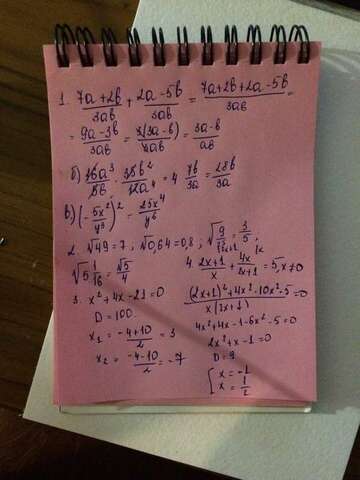 1. (7a+2b)/3ab + (2a-5b)/3ab = (7a+2b+2a-5b)/3ab =
= (9a-3b)/3ab = 3(3a-b)/3ab = (3a-b)/ab
б) 16a³/5b · 35b²/12a⁴ = 4 7b/3a = 28b/3a
в) (-5x²/y³)² = 25x⁴/y⁶
2. √49 = 7; √0,64 = 0,8; √9/25 = 3/5;
√5 1/16 = √5/4
4. (2x+1)/x + 4x/(2x+1) = 5, x≠0
3. x² + 4x - 21 = 0
D = 100
x₁ = (-4+10)/2 = 3
x₂ = (-4-10)/2 = -7
((2x+1)² + 4x² - 10x² - 5)/(x(2x+1)) = 0
4x² + 4x - 1 - 6x² - 5 = 0
2x² + x - 1 = 0
D = 9
x = -1
x = 1/2